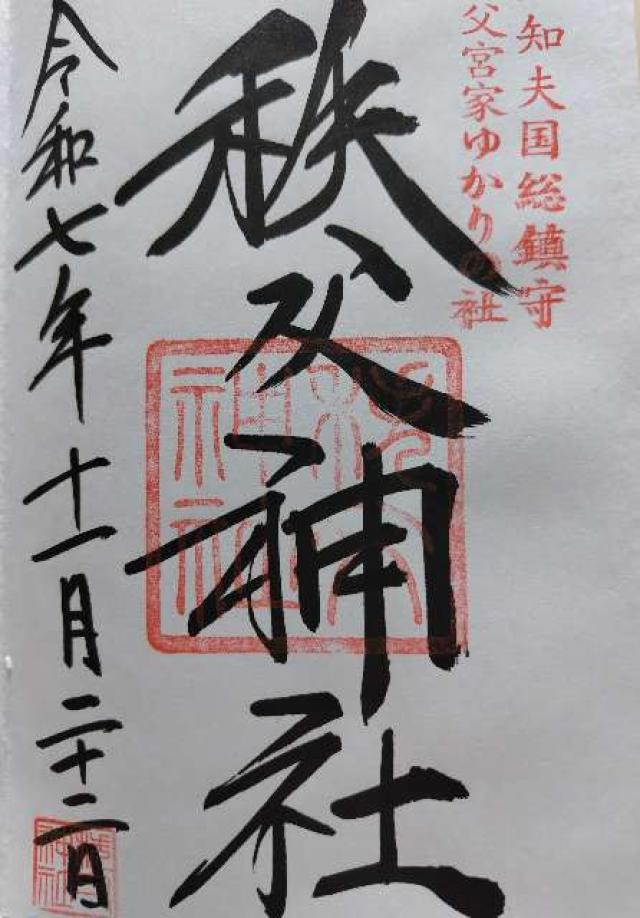 知夫国総鎮守
父宮家ゆかりの社
秩父神社
秩父神社
令和七年十一月二十二日